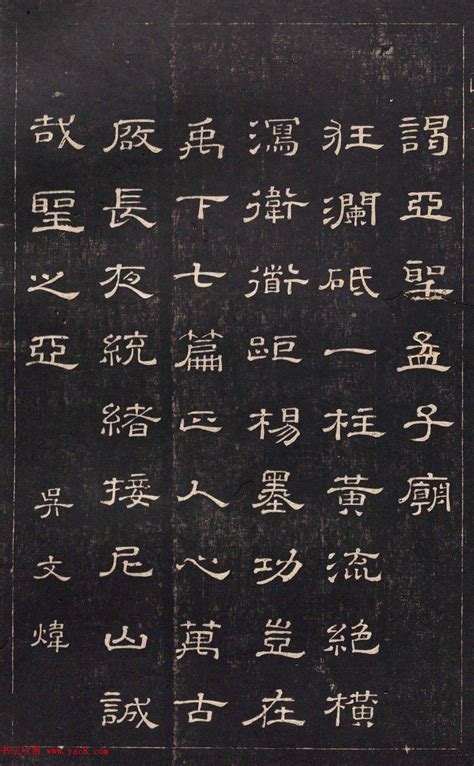 謁亞聖孟子廟
狂瀾砥一柱黃流絕橫
瀉衛衜距楊墨功豈在
禹下七篇正人心萬古
啟長夜統緒接尼山誠
哉聖之亞 吳文煒
书法欣赏 www.yac8.com